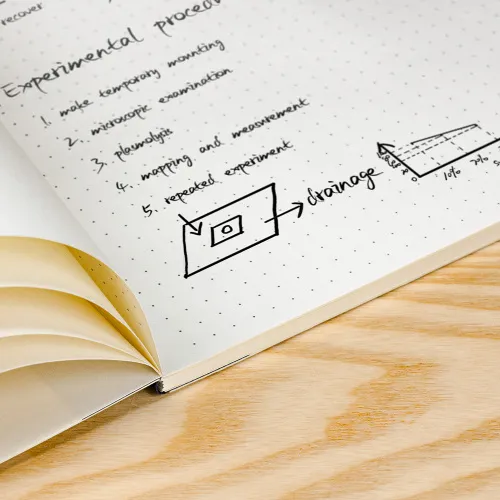 recover
Experimental proced
1. make temporary mounting
2. microscopic examination
3. plasmolysis
4. mapping and measurement
5. repeated experiment
drainage
0 10% 20%